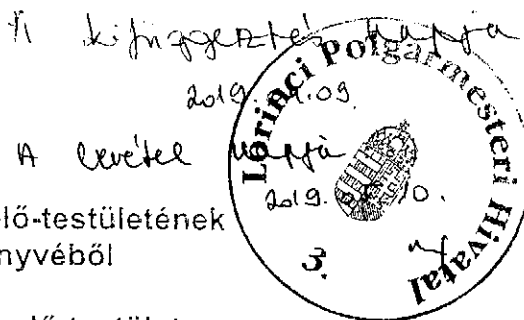 A kifüggesztés napja
2019. 09.
A levétel napja
2019. 0.
Lőrinci Polgármesteri Hivatal
3.
lő-testületének
nyvéből
lő-testület